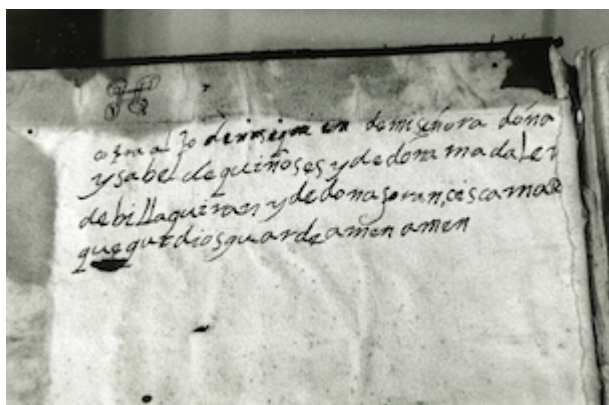 de mi señora doña
ysabel de quiñoses y de dona madalen
de billaquiran y de dona foran,cisca ma
que dios guarde amen amen